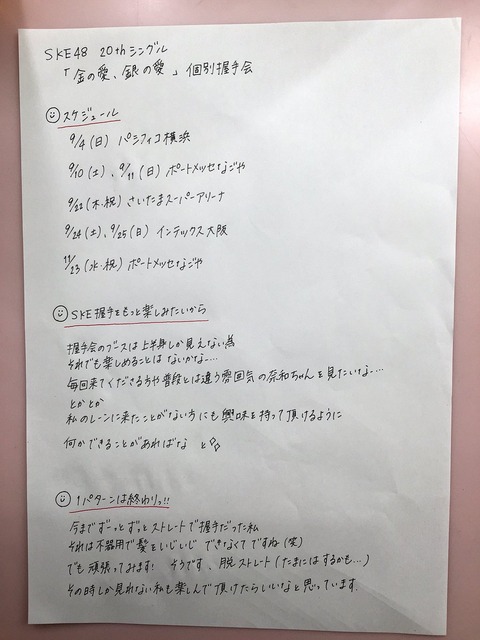 SKE48 20thシングル
「金の愛、銀の愛」個別握手会
スケジュール
9/4(日) パシフィコ横浜
9/10(土)、9/11(日) ポートメッセなごや
9/22(木・祝) さいたまスーパーアリーナ
9/24(土)、9/25(日) インテックス大阪
11/23(水・祝) ポートメッセなごや
SKE握手をもっと楽しみたいから
握手会のブースは上半身しか見えない為
それでも楽しめることはないかなー…
毎回来てくださる方や普段とは違う雰囲気の奈和ちゃんを見たいなー…
とかとか
私のレーンに来たことがない方にも興味を持って頂けるように
何かできることがあればな と
1パターンは終わりっ!!
今までずーっとずっとストレートで握手だった私
それは不器用で髪をいじいじできなくてですね(笑)
でも頑張ってみます! そうです、脱ストレート(たまにはするかも…)
その時しか見れない私も楽しんで頂けたらいいなと思っています.